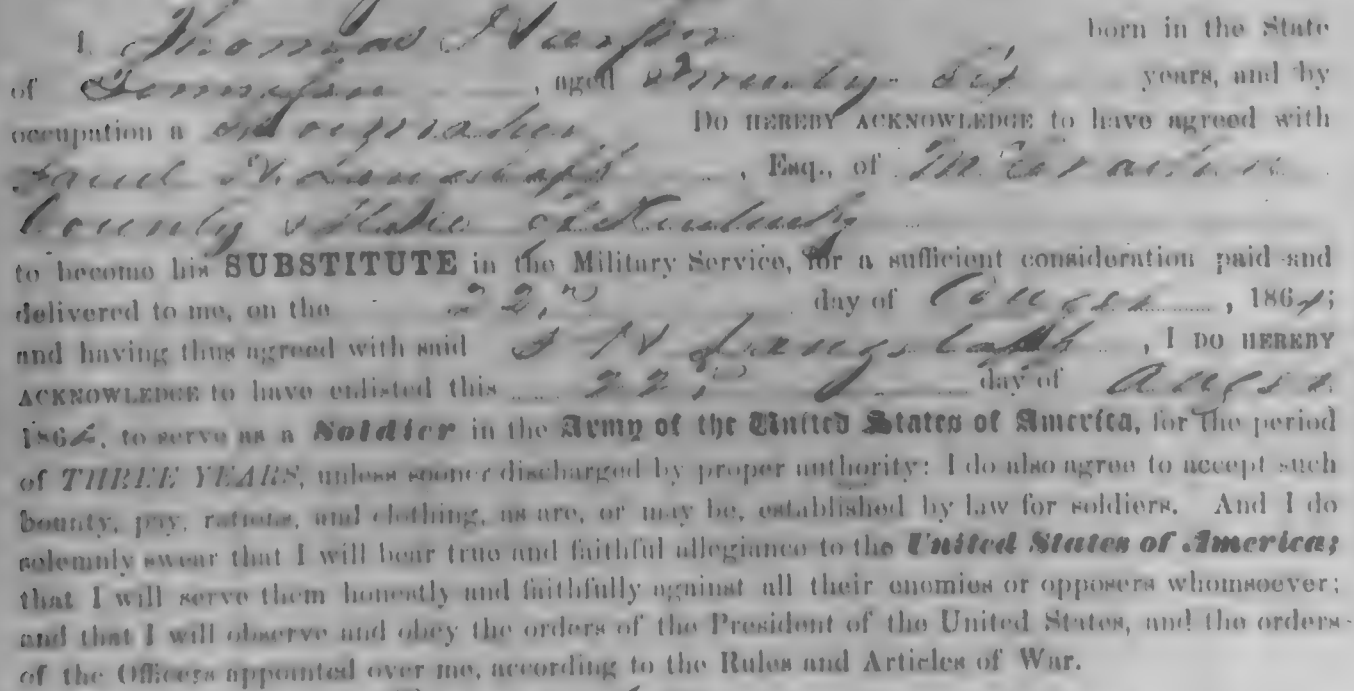 I, Thomas born in the State
of , aged Twenty Six years, and by
occupation a DO HEREBY ACKNOWLEDGE to have agreed with
, Esq., of McCracken
County State of Kentucky
to become his SUBSTITUTE in the Military Service, for a sufficient consideration paid and
delivered to me, on the 22 day of , 1864;
and having thus agreed with said , I DO HEREBY
ACKNOWLEDGE to have enlisted this 22 day of
1864, to serve as a Soldier in the Army of the United States of America, for the period
of THREE YEARS, unless sooner discharged by proper authority: I do also agree to accept such
bounty, pay, rations, and clothing, as are, or may be, established by law for soldiers. And I do
solemnly swear that I will bear true and faithful allegiance to the United States of America;
that I will serve them honestly and faithfully against all their enemies or opposers whomsoever;
and that I will observe and obey the orders of the President of the United States, and the orders
of the Officers appointed over me, according to the Rules and Articles of War.